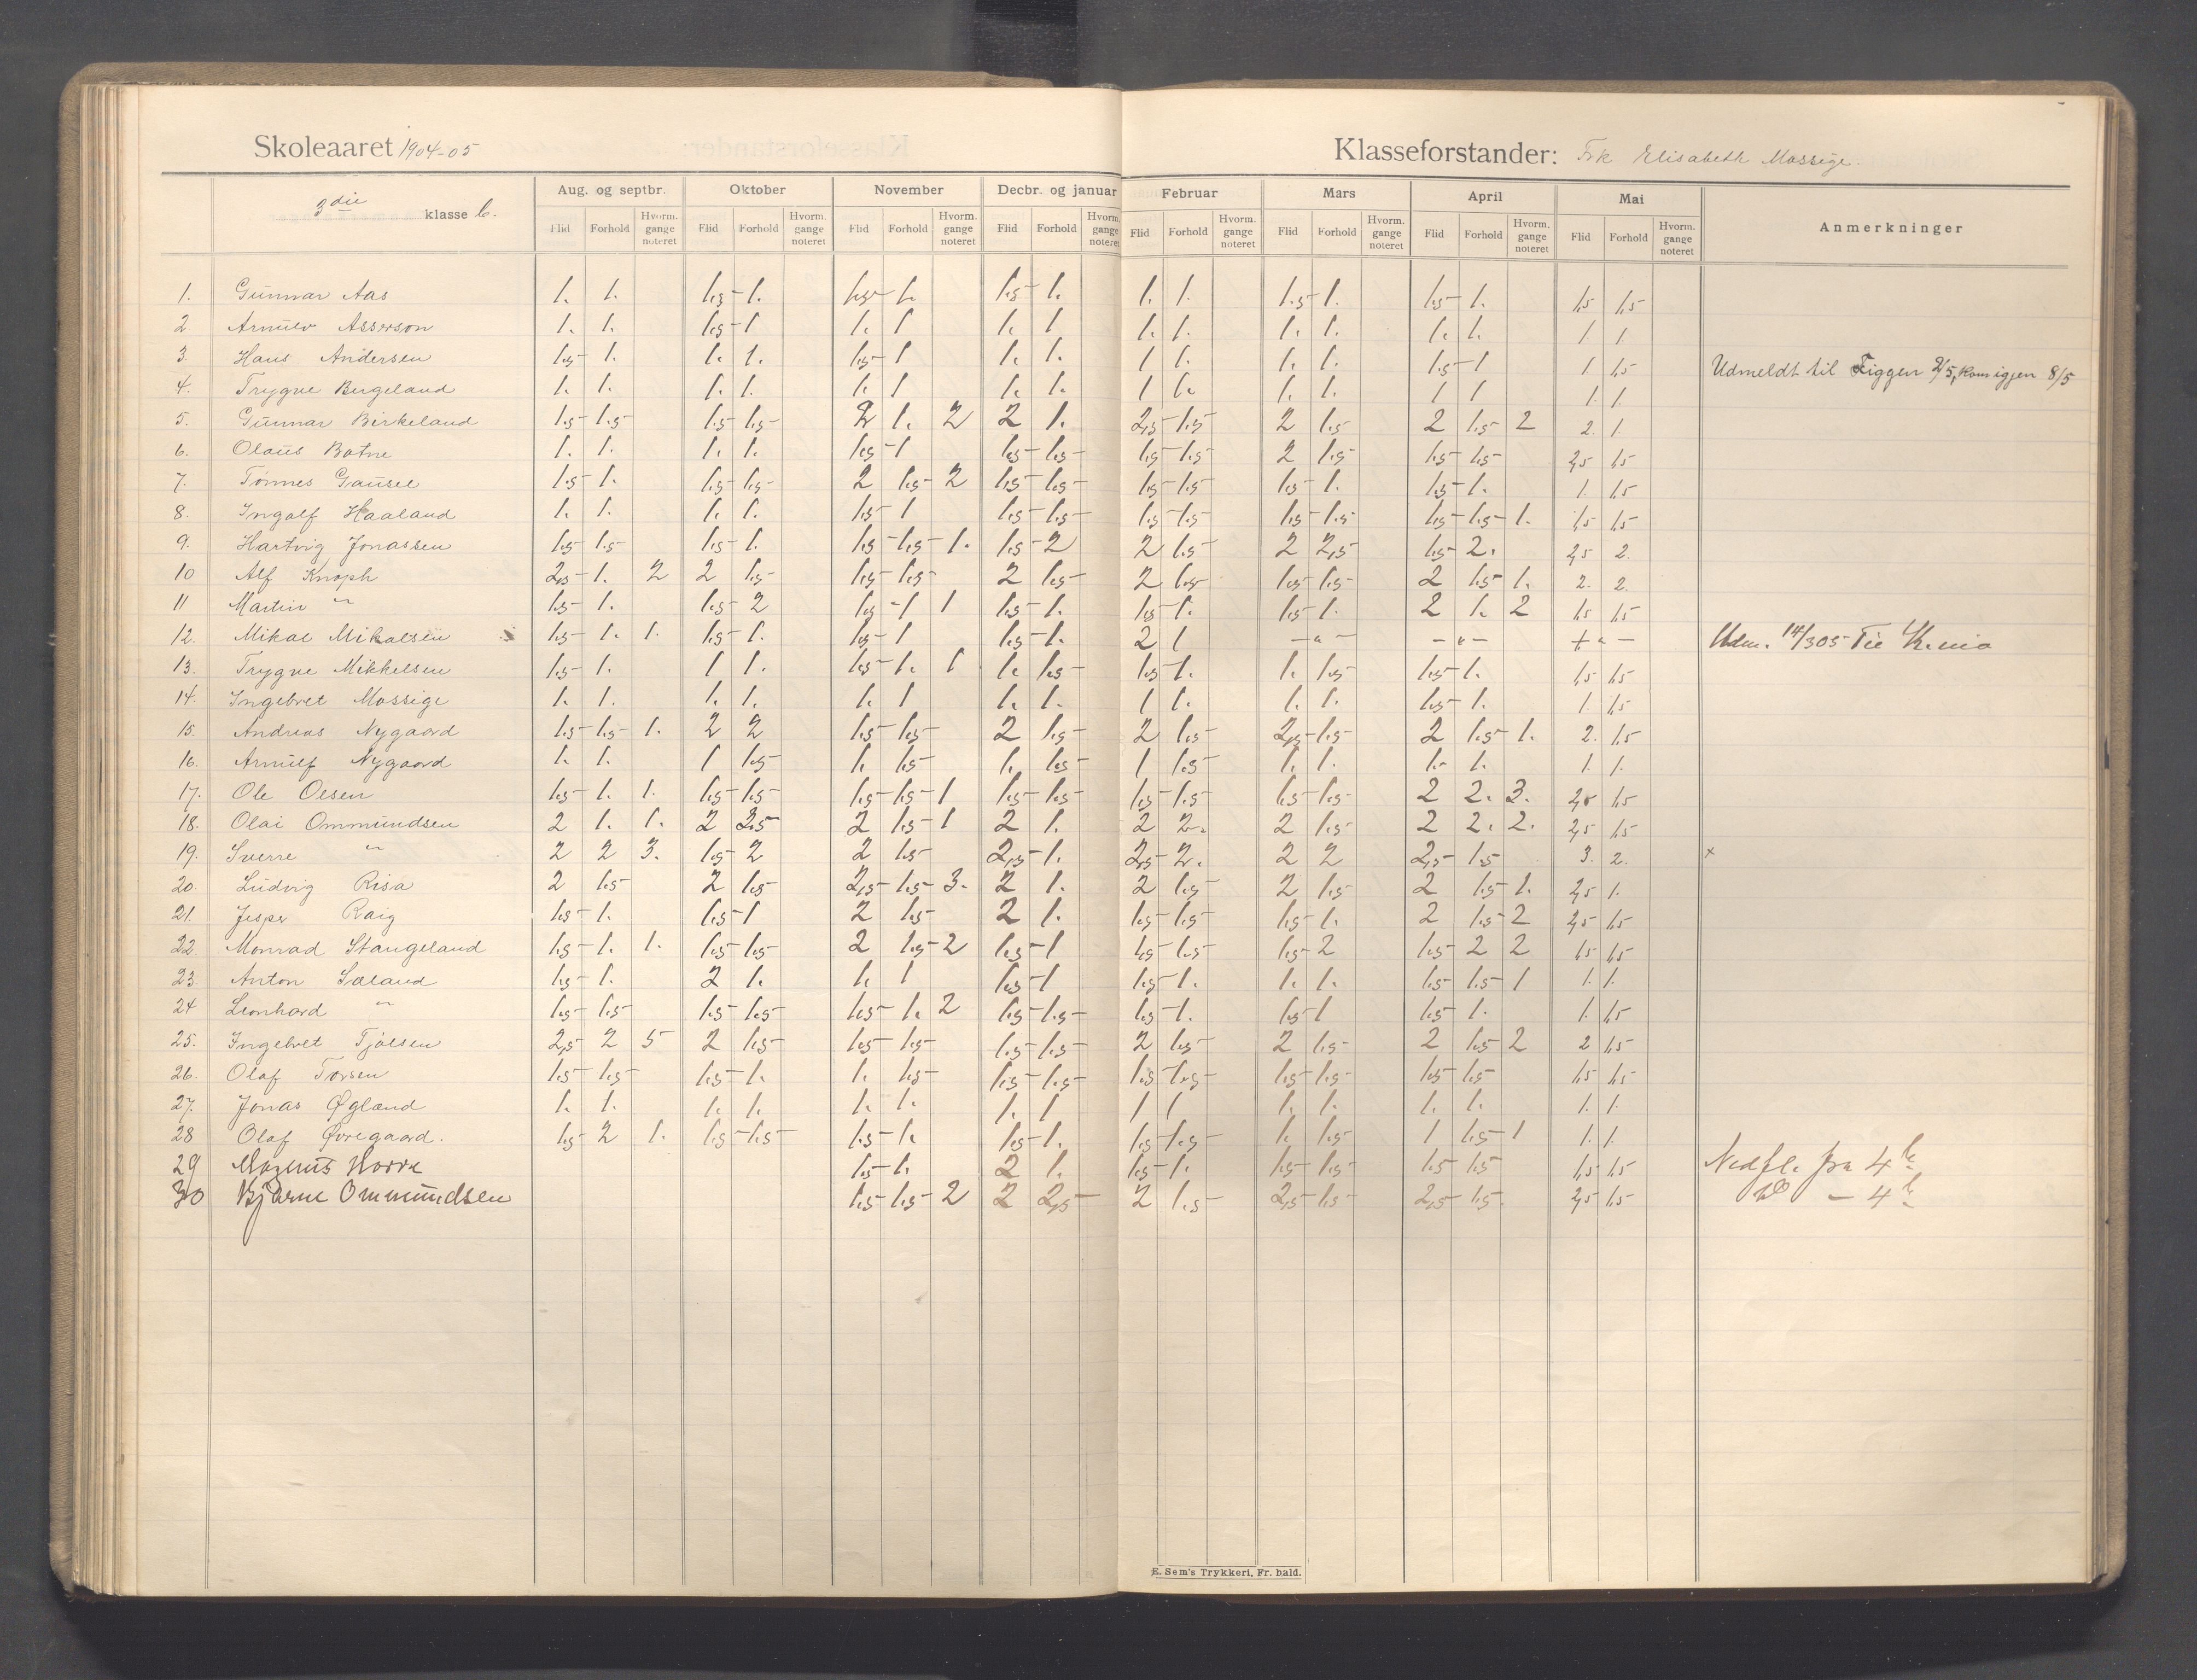 Skoleaaret 1904-05 Klasseforstander: Frk Elisabeth Mossige.
3die klasse b. Aug. og septbr. Oktober November Decbr. og januar Februar Mars April Mai Anmerkninger
Flid Forhold Hvorm. gange noteret Flid Forhold Hvorm. gange noteret Flid Forhold Hvorm. gange noteret Flid Forhold Hvorm. gange noteret Flid Forhold Hvorm. gange noteret Flid Forhold Hvorm. gange noteret Flid Forhold Hvorm. gange noteret Flid Forhold Hvorm. gange noteret
1. Gunnar Aas 1. 1. 1.5 1. 1.5 1. 1.5 1. 1. 1. 1.5 1. 1.5 1. 1,5 1,5
2 Arnulv Asserson 1. 1. 1.5 1 1. 1 1. 1 1. 1. 1. 1. 1. 1. 1. 1.
3. Hans Andersen 1.5 1. 1. 1. 1.5 1 1. 1. 1 1. 1. 1. 1.5 1 1 1,5 Udmeldt til Figgen 2/5, kom igjen 8/5
4. Trygve Bergeland 1. 1. 1. 1. 1. 1 1. 1. 1 1. 1. 1. 1 1 1. 1
5. Gunnar Birkeland 1.5 1.5 1.5 1.5 2 1. 2 2 1. 2,5 1.5 2 1.5 2 1.5 2 2. 1.
6. Olaus Botne 1. 1. 1. 1. 1.5 1 1.5 1.5 1.5 1.5 2 1.5 1.5 1.5 2,5 1,5
7. Tønnes Gausel 1.5 1. 1.5 1.5 2 1.5 2 1.5 1.5 1.5 1.5 1.5 1. 1.5 1. 1. 1,5
8. Ingolf Haaland 1. 1. 1. 1. 1.5 1 1.5 1.5 1.5 1.5 1.5 1.5 1.5 1.5 1. 1,5 1,5
9. Hartvig Jonassen 1.5 1.5 1.5 1. 1.5 1.5 1. 1.5 2 2 1.5 2 2,5 1.5 2. 2,5 2.
10 Alf Knoph 2,5 1. 2 2 1.5 1.5 1.5 2 1.5 2 1.5 1.5 1.5 2 1.5 1. 2. 2.
11 Martin " 1.5 1. 1.5 2 1.5 1 1 1.5 1. 1.5 1. 1.5 1. 2 1. 2 1,5 1,5
12. Mikal Mikalsen 1.5 1. 1. 1.5 1. 1.5 1 1.5 1. 2 1 - " - - " - + " - Udm. 14/3 05
13. Trygve Mikkelsen 1.5 1. 1 1. 1.5 1. 1 1. 1.5 1.5 1. 1. 1.5 1.5 1. 1,5 1,5
14. Ingebret Mossige 1. 1. 1. 1. 1. 1 1. 1. 1 1. 1. 1. 1.5 1. 1. 1,5
15. Andreas Nygaard 1.5 1.5 1. 2 2 1.5 1.5 2 1.5 2 1.5 2,5 1.5 2 1.5 1. 2. 1,5
16. Arnulf Nygaard 1. 1. 1 1.5 1. 1.5 1. 1.5 1 1.5 1. 1. 1. 1. 1. 1.
17. Ole Olsen 1.5 1. 1. 1.5 1.5 1.5 1.5 1 1.5 1.5 1.5 1.5 1.5 1.5 2 2. 3. 2,5 1,5
18. Olai Ommundsen 2 1. 1. 2 2.5 2 1.5 1 2 1. 2 2. 2 1.5 2 2. 2. 2,5 1,5
19. Sverre " 2 2 3. 1.5 2 2 1.5 2,5 1. 2,5 2. 2 2 2,5 1.5 3. 2. x
20. Ludvig Risa 2 1.5 2 1.5 2,5 1.5 3. 2 1. 2 1.5 2 1.5 2 1.5 1. 2,5 1.
21. Jesper Roig 1.5 1. 1.5 1 2 1.5 2 1. 1.5 1.5 1.5 1. 2 1.5 2 2,5 1,5
22. Monrad Stangeland 1.5 1. 1. 1.5 1.5 2 1.5 2 1.5 1 1.5 1.5 1.5 2 1.5 2 2 1,5 1,5
23. Anton Sæland 1.5 1. 2 1. 1. 1 1.5 1 1.5 1. 1. 1. 1.5 1.5 1 1. 1.
24 Leonhard " 1.5 1.5 1.5 1.5 1.5 1. 2 1.5 1.5 1.5 1. 1.5 1 1.5 1. 1. 1,5
25. Ingebret Tjølsen 2,5 2 5 2 1.5 1.5 1.5 1.5 1.5 2 1.5 2 1.5 2 1.5 2 2 1,5
26. Olaf Torsen 1.5 1.5 1.5 1. 1. 1.5 1.5 1.5 1.5 1.5 1.5 1.5 1.5 1.5 1,5 1,5
27. Jonas Øglænd 1. 1. 1. 1. 1. 1. 1. 1 1 1 1. 1. 1. 1. 1. 1.
28 Olaf Øvregaard. 1.5 2 1. 1.5 1.5 1.5 1. 1.5 1. 1.5 1.5 1. 1.5 1 1.5 1 1. 1.
29 Magnus Norra 1.5 1. 2 1. 1.5 1. 1.5 1.5 1.5 1.5 1,5 1,5 Nedfl. fra 4 b
30 Bjarne Ommundsen 1.5 1.5 2 2 2,5 2 1.5 2,5 1.5 2,5 1.5. 2,5 1,5 do - 4 b
E. Sem's Trykkeri, Fr. hald.